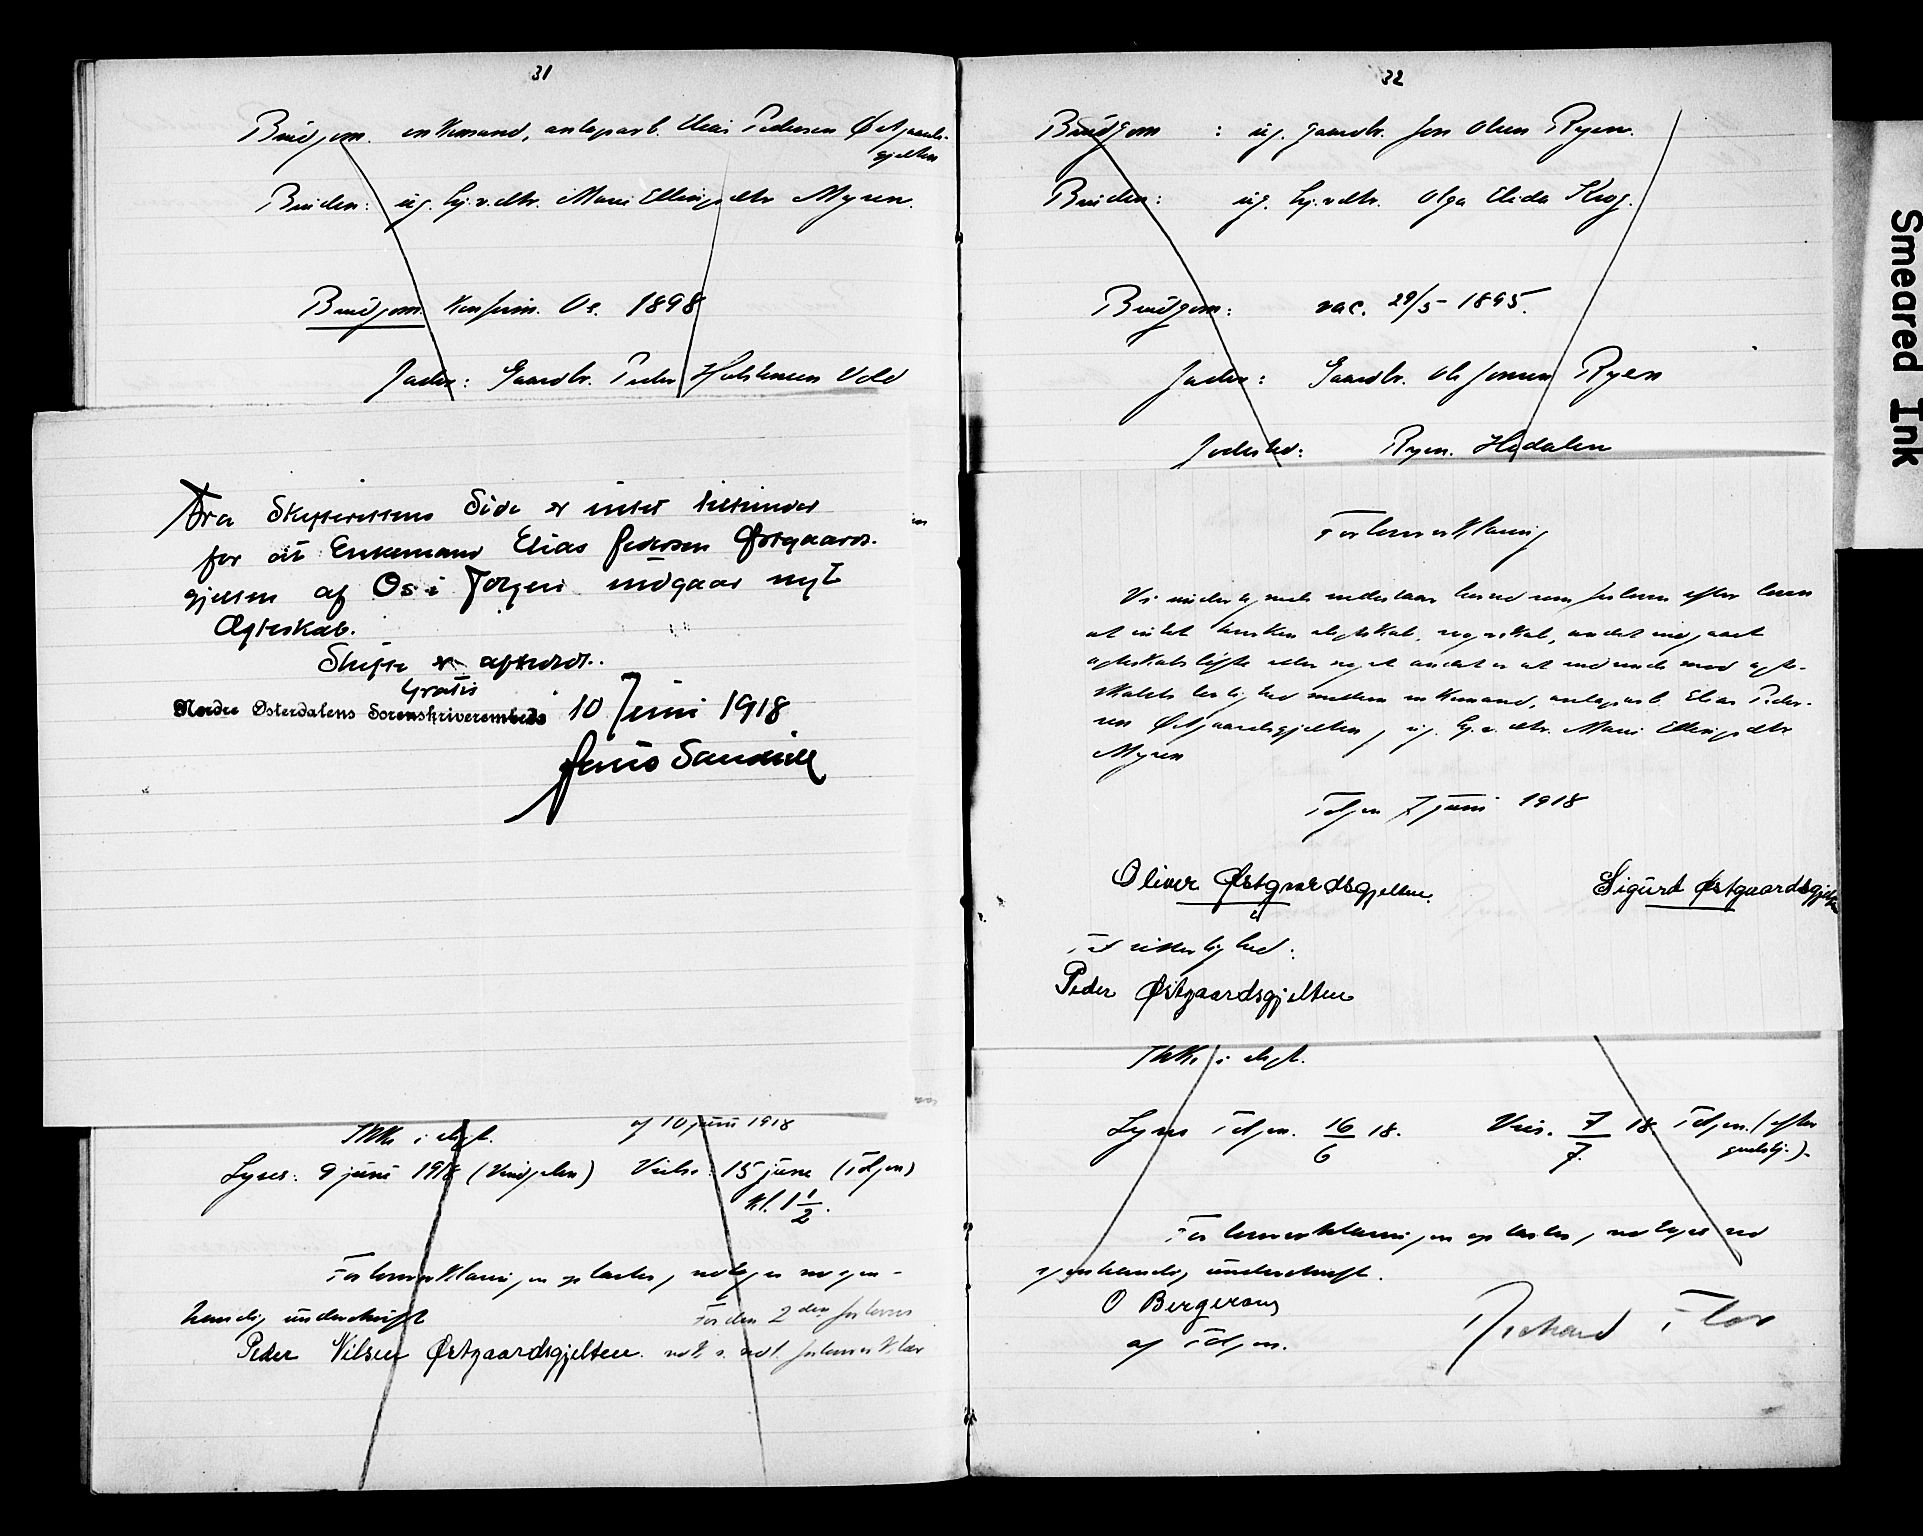 31
Brudgom. enkemand, anlægsarb. Elias Pedersen Østgaards-
gjelten
Bruden: ug. hj.v.dtr. Marie Ellingsdtr Myren.
Brudgom. Konfirm. Os. 1898
Fader: Gaardbr. Peder Holstensen Vold
Fra Skifterettens Side er intet tilhinder
for at Enkemand Elias Pedersen Østgaards-
gjelten af Os i Tolgen indgaar nyt
Ægteskab.
Skifte er afholdt.
Gratis
Nordre Østerdalens Sorenskriverembede 10 Juni 1918
Jens Sandvik
Ikke i slegt.
af 10 juni 1918
Lyses: 9 juni 1918 (Vingelen) Vielse: 15 june (Tolgen)
Kl. 1 1/2.
Forlovererklæringen oplæstes, vedtages m egen-
hændig underskrift
For den 2den forlover
Peder Nilsen Østgaardsgjelten. se v. vedl. forlovererklær
32
Brudgom : ug. gaardbr. Jon Olsen Ryen.
Bruden: ug. hj.v.dtr. Olga Elida Krog.
Brudgom: vac. 29/5 1895.
Fader: Gaardbr. Ole Jonsen Ryen
Fødested: Ryen. Hodalen
Forlovererklæring
Vi undertegnede indestaar herved som forlovere efter loven
at intet hverken slegtskab, svogerskab, andet indgaaet
egteskabsløfte eller noget andet er at indvende mod egte-
skabets lovlighed mellem enkemand, anlægsarb. Elias Peder-
sen Østgaardsgjelten, ug. hj.v.dtr. Marie Ellingsdtr
Myren
Tolgen 7 juni 1918
Oliver Østgaardsgjelten. Sigurd Østgaardsgjelten
Til vitterlighed:
Peder Østgaardsgjelten
Ikke i slegt.
Lyses Tolgen. 16/6 18. Vies. 7/7 18 Tolgen. (efter
gudstj.).
Forlovererklæringen oplæstes, vedtages ved
egenhændig underskrift.
O Bergersen
af Tolgen.
Richard Flor
Smeared Ink